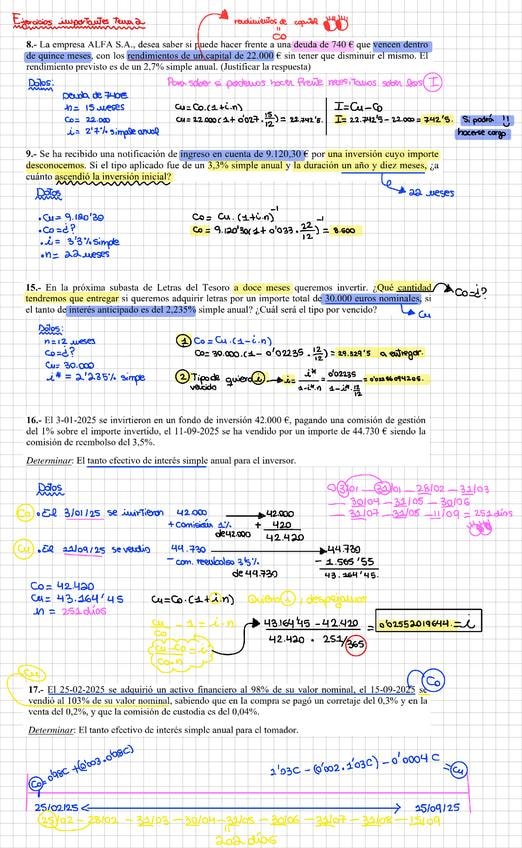 Ejercicios importantes Tema 2
rendimientos de capital
Co
8.- La empresa ALFA S.A., desea saber si puede hacer frente a una deuda de 740 € que vencen dentro
de quince meses, con los rendimientos de un capital de 22.000 € sin tener que disminuir el mismo. El
rendimiento previsto es de un 2,7% simple anual. (Justificar la respuesta)
Datos:
Para saber si podemos hacer frente necesitamos saber los I
Deuda de 740€
n = 15 meses
Co = 22.000
i = 2'7% simple anual
Cu = Co.(1+i.n)
Cu = 22.000(1+0'027.15/12) = 22.742'5.
I = Cu - Co
I = 22.742'5 - 22.000 = 742'5.
Si podrá !!
hacerse cargo
9.- Se ha recibido una notificación de ingreso en cuenta de 9.120,30 € por una inversión cuyo importe
desconocemos. Si el tipo aplicado fue de un 3,3% simple anual y la duración un año y diez meses, ¿a
cuánto ascendió la inversión inicial?
22 meses
Datos
. Cu = 9.120'30
. Co = ¿?
. i = 3'3% simple
. n = 22 meses
Co = Cu.(1+i.n)-1
Co = 9.120'30(1+0'033.22/12)-1 = 8.600
15.- En la próxima subasta de Letras del Tesoro a doce meses queremos invertir. ¿Qué cantidad
tendremos que entregar si queremos adquirir letras por un importe total de 30.000 euros nominales, si
el tanto de interés anticipado es del 2,235% simple anual? ¿Cuál será el tipo por vencido?
Co = ¿?
Cu
Datos:
n = 12 meses
Co = ¿?
Cu = 30.000
i* = 2'235% simple
1 Co = Cu.(1-i.n)
Co = 30.000.(1-0'02235.12/12) = 29.329'5 a entregar.
2 Tipo de vencido quiero i → i = i*/1-i*.n = 0'02235/1-i*.12/12 = 0'02286094205.
16.- El 3-01-2025 se invirtieron en un fondo de inversión 42.000 €, pagando una comisión de gestión
del 1% sobre el importe invertido, el 11-09-2025 se ha vendido por un importe de 44.730 € siendo la
comisión de reembolso del 3,5%.
Determinar: El tanto efectivo de interés simple anual para el inversor.
Datos
03/01 - 31/01 - 28/02 - 31/03
- 30/04 - 31/05 - 30/06
- 31/07 - 31/08 - 11/09 = 251 días
Co . El 3/01/25 se invirtieron 42.000 → 42.000
+ Comisión 1% de 42000 + 420
42.420
Cu . El 11/09/25 se vendio 44.730 → 44.730
- com. reembolso 3'5% de 44.730 - 1.565'55
43.164'45.
Co = 42.420
Cu = 43.164'45
n = 251 días
Cu = Co.(1+i.n) Quiero i, despejamos
Cu/Co - 1 = i.n
Cu-Co/Co.n = i
43.164'45 - 42.420/42.420 . 251/365 = 0'02552019644 = i
17.- El 25-02-2025 se adquirió un activo financiero al 98% de su valor nominal, el 15-09-2025 se
vendió al 103% de su valor nominal, sabiendo que en la compra se pagó un corretaje del 0,3% y en la
venta del 0,2%, y que la comisión de custodia es del 0,04%.
Cu
Co
Determinar: El tanto efectivo de interés simple anual para el tomador.
Co = 0'98C + (0'003.0'98C)
1'03C - (0'002.1'03C) - 0'0004C = Cu
25/02/25
15/09/25
25/02 - 28/02 - 31/03 - 30/04 - 31/05 - 30/06 - 31/07 - 31/08 - 15/09
202 días